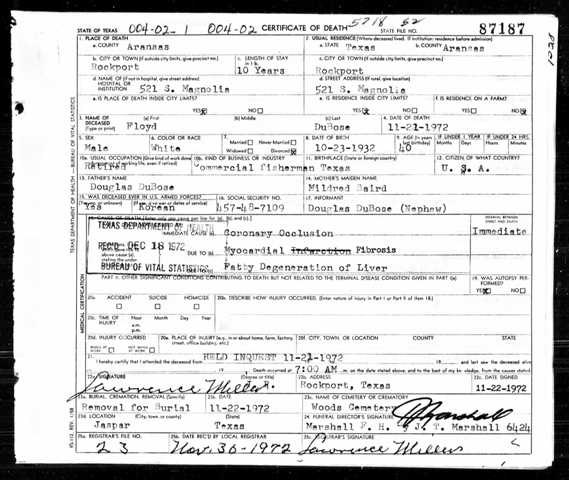 STATE OF TEXAS 004-02-1 004-02 CERTIFICATE OF DEATH 5218 52 STATE FILE NO. 87187
1. PLACE OF DEATH
a. COUNTY Aransas
2. USUAL RESIDENCE (Where deceased lived. If institution: residence before admission)
a. STATE Texas b. COUNTY Aransas
b. CITY OR TOWN (If outside city limits, give precinct no.) Rockport
c. LENGTH OF STAY in 1 b. 10 Years
c. CITY OR TOWN (If outside city limits, give precinct no.) Rockport
d. NAME OF (If not in hospital, give street address) HOSPITAL OR INSTITUTION 521 S. Magnolia
d. STREET ADDRESS (If rural, give location) 521 S. Magnolia
e. IS PLACE OF DEATH INSIDE CITY LIMITS? YES NO
e. IS RESIDENCE INSIDE CITY LIMITS? YES NO
f. IS RESIDENCE ON A FARM? YES NO
3. NAME OF DECEASED (Type or print)
(a) First Floyd (b) Middle (c) Last DuBose
4. DATE OF DEATH 11-21-1972
5. SEX Male
6. COLOR OR RACE White
7. Married Never Married Widowed Divorced
8. DATE OF BIRTH 10-23-1932
9. AGE (In years last birthday) 40
IF UNDER 1 YEAR Months Days
IF UNDER 24 HRS. Hours Min.
10a. USUAL OCCUPATION (Give kind of work done Retired
10b. KIND OF BUSINESS OR INDUSTRY Commercial fisherman
11. BIRTHPLACE (State or foreign country) Texas
12. CITIZEN OF WHAT COUNTRY? U. S. A.
13. FATHER'S NAME Douglas DuBose
14. MOTHER'S MAIDEN NAME Mildred Baird
15. WAS DECEASED EVER IN U.S. ARMED FORCES? Yes Korean
16. SOCIAL SECURITY NO. 457-48-7109
17. INFORMANT Douglas DuBose (Nephew)
18. CAUSE OF DEATH (Enter only one cause per line for (a), (b), and (c).)
TEXAS DEPARTMENT OF HEALTH
REC'D DEC 18 1972
BUREAU OF VITAL STATISTICS
IMMEDIATE CAUSE (a) Coronary Occlusion
INTERVAL BETWEEN ONSET AND DEATH Immediate
DUE TO (b) Myocardial Infarction Fibrosis
DUE TO (c) Fatty Degeneration of Liver
PART II. OTHER SIGNIFICANT CONDITIONS CONTRIBUTING TO DEATH BUT NOT RELATED TO THE TERMINAL DISEASE CONDITION GIVEN IN PART I(a)
19. WAS AUTOPSY PERFORMED? YES NO
20a. ACCIDENT SUICIDE HOMICIDE
20b. DESCRIBE HOW INJURY OCCURRED. (Enter nature of injury in Part I or Part II of item 18.)
20c. TIME OF INJURY Hour Month Day Year a.m. p.m.
20d. INJURY OCCURRED WHILE AT WORK NOT WHILE AT WORK
20e. PLACE OF INJURY (e.g. in or about home, farm, factory, street, office building, etc.)
20f. CITY, TOWN, OR LOCATION COUNTY STATE
21. I hereby certify that I attended the deceased from HELD INQUEST 11-21-1972 19 and last saw the deceased alive
19 Death occurred at 7:00 AM m. on the date stated above; and to the best of my knowledge, from the causes stated.
22a. SIGNATURE (Degree or title) Lawrence Miller
22b. ADDRESS Rockport, Texas
22c. DATE SIGNED 11-22-1972
23a. BURIAL, CREMATION, REMOVAL (Specify) Removal for Burial
23b. DATE 11-22-1972
23c. NAME OF CEMETERY OR CREMATORY Woods Cemetery
23d. LOCATION (City, town, or county) (State) Jaspar Texas
24. FUNERAL DIRECTOR'S SIGNATURE Marshall F. H. J. T. Marshall 6424
25a. REGISTRAR'S FILE NO. 23
25b. DATE REC'D BY LOCAL REGISTRAR Nov. 30-1972
25c. REGISTRAR'S SIGNATURE Lawrence Miller
TEXAS DEPARTMENT OF HEALTH — BUREAU OF VITAL STATISTICS
MEDICAL CERTIFICATION